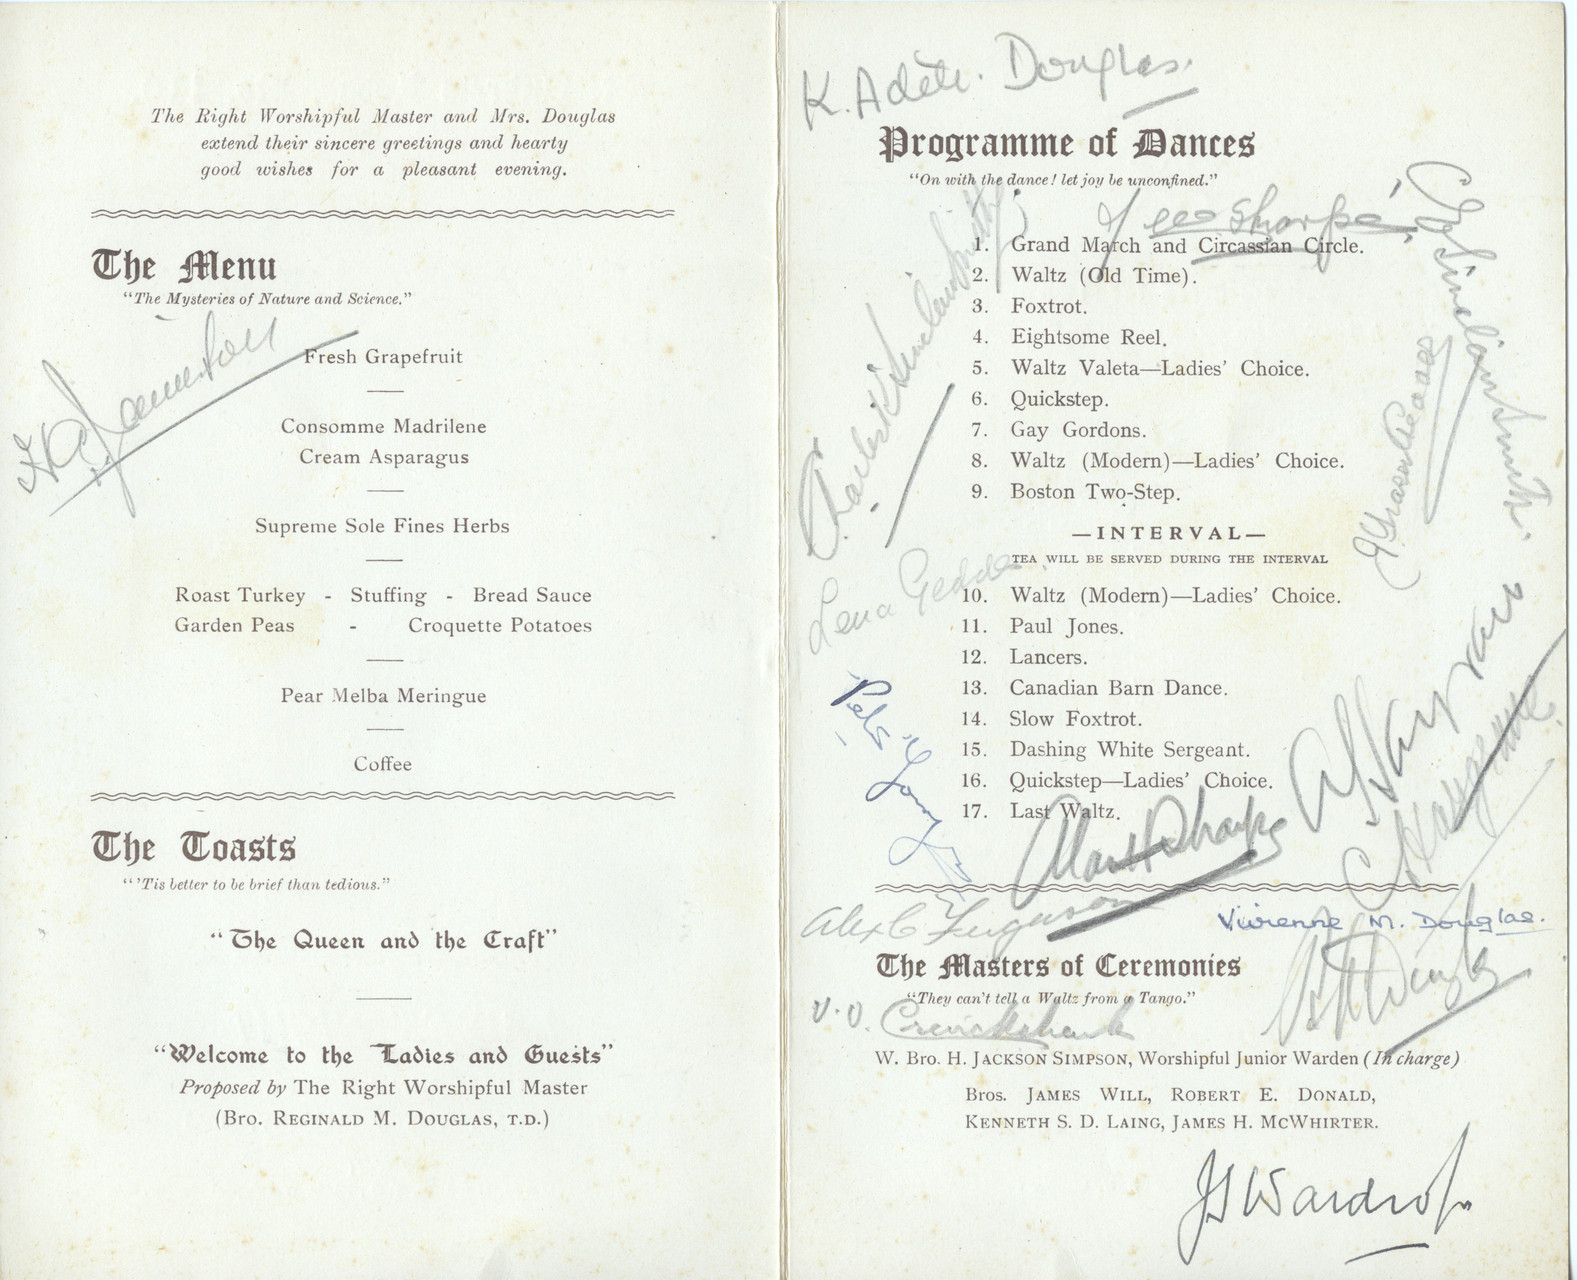 The Right Worshipful Master and Mrs. Douglas
extend their sincere greetings and hearty
good wishes for a pleasant evening.
The Menu
"The Mysteries of Nature and Science."
Fresh Grapefruit
Consomme Madrilene
Cream Asparagus
Supreme Sole Fines Herbs
Roast Turkey - Stuffing - Bread Sauce
Garden Peas - Croquette Potatoes
Pear Melba Meringue
Coffee
The Toasts
"'Tis better to be brief than tedious."
"The Queen and the Craft"
"Welcome to the Ladies and Guests"
Proposed by The Right Worshipful Master
(Bro. REGINALD M. DOUGLAS, T.D.)
K. Adele. Douglas.
Programme of Dances
"On with the dance! let joy be unconfined."
Geo Sharpe
1. Grand March and Circassian Circle.
2. Waltz (Old Time).
3. Foxtrot.
4. Eightsome Reel.
5. Waltz Valeta—Ladies' Choice.
6. Quickstep.
7. Gay Gordons.
8. Waltz (Modern)—Ladies' Choice.
9. Boston Two-Step.
—INTERVAL—
TEA WILL BE SERVED DURING THE INTERVAL
Lena Geddes.
10. Waltz (Modern)—Ladies' Choice.
11. Paul Jones.
12. Lancers.
13. Canadian Barn Dance.
14. Slow Foxtrot.
15. Dashing White Sergeant.
16. Quickstep—Ladies' Choice.
17. Last Waltz.
Alan H Sharpe
Alex C Ferguson
Vivienne M. Douglas.
The Masters of Ceremonies
"They can't tell a Waltz from a Tango."
V. O. Cruickshank
W. Bro. H. JACKSON SIMPSON, Worshipful Junior Warden (In charge)
Bros. JAMES WILL, ROBERT E. DONALD,
KENNETH S. D. LAING, JAMES H. McWHIRTER.
Wardrop